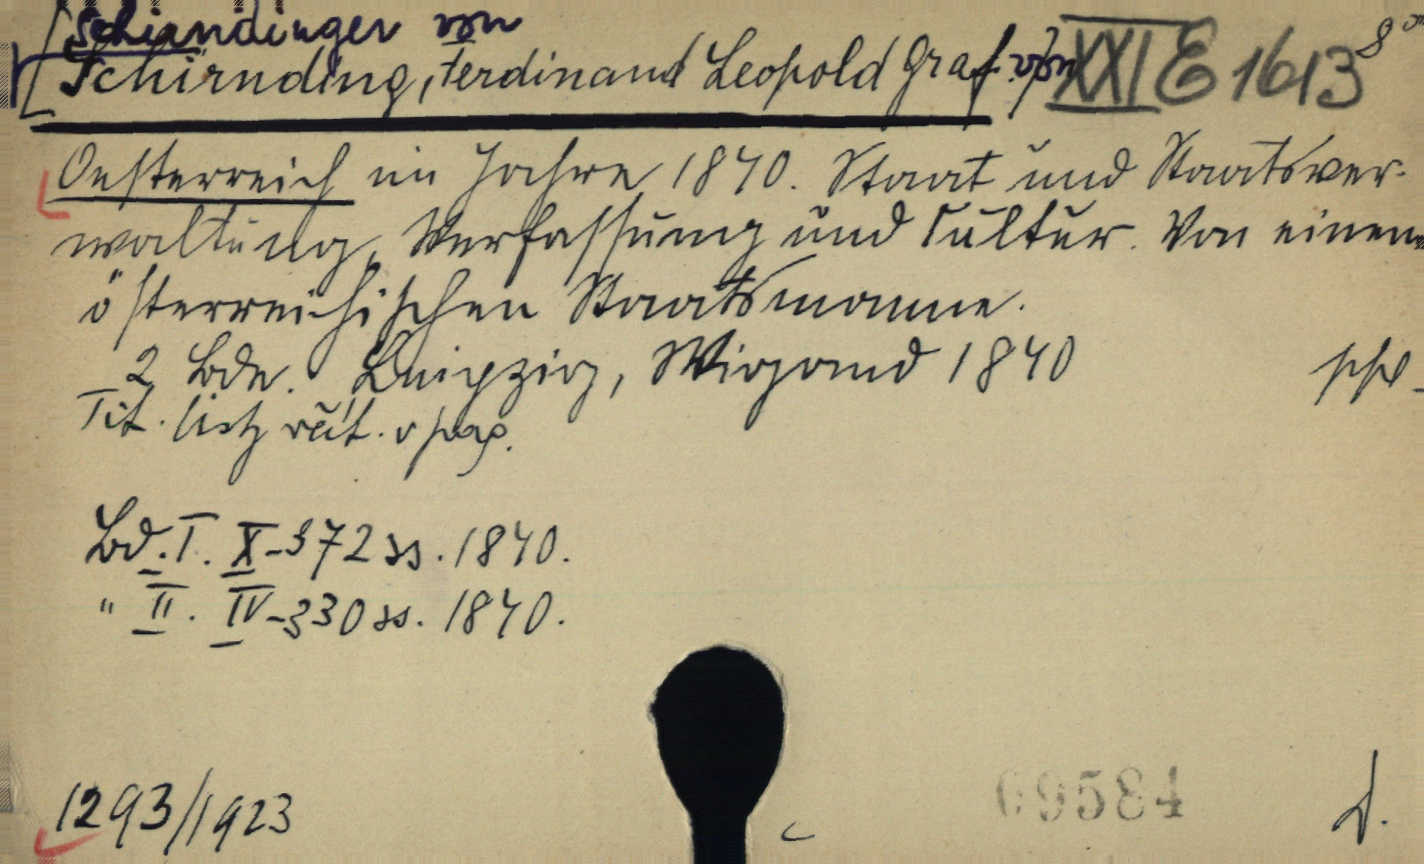 Schirndinger von
[Schirnding, Ferdinand Leopold Graf von] XXI E 1613 8°
Oesterreich im Jahre 1840. Staat und Staatsver-
waltung, Verfassung und Cultur. Von einem
österreichischen Staatsmanne.
2 Bde. Leipzig, Wigand 1840
Tit. listy
Bd. I. X-372 ss. 1840.
" II. IV-330 ss. 1840.
1293/1923
69584
d.